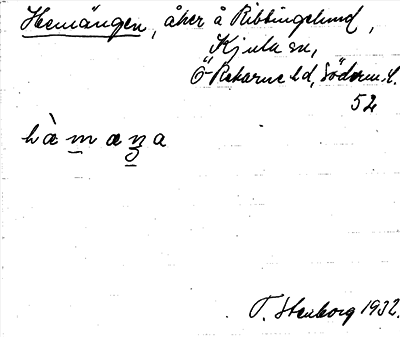 Hemängen, åker å Ribbingelund,
Kjula sn,
Ö-Rekarne hd, Söderm. l.
52
hà m æ ŋ a
T. Stenborg 1932.